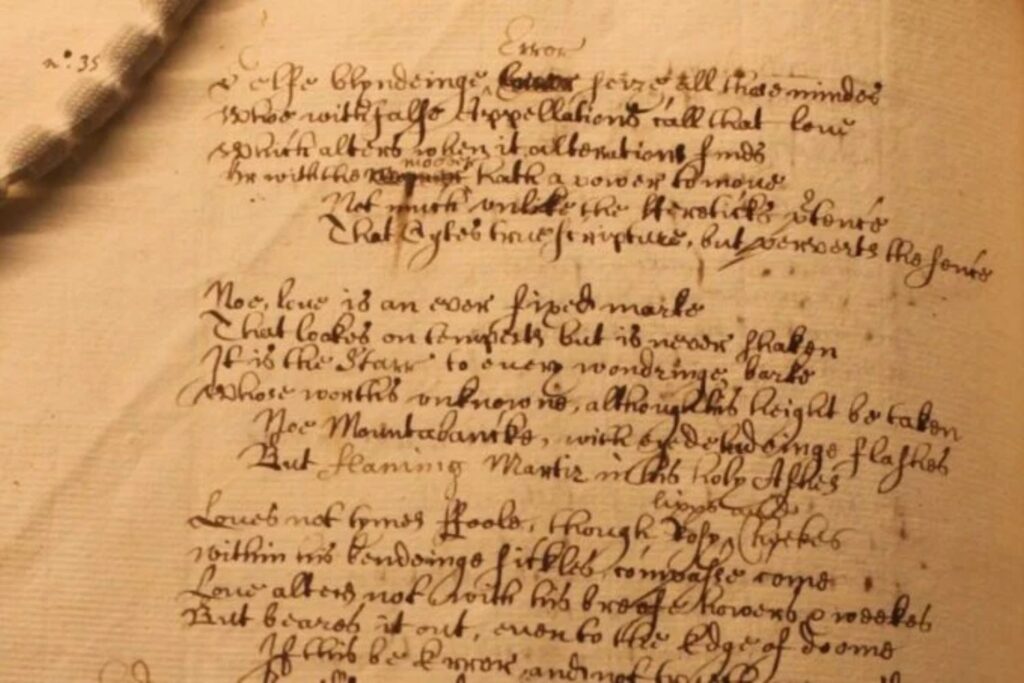 Error
n°. 35
Selfe blyndeinge seize all those mindes
Whoe with false Appellations call that loue
Which alters when it alterations finds
mover
Or with the hath a power to moue
Not much unlike the Hereticks p̃tence
That Cytes true scripture, but perverts the sence
Noe, Loue is an ever fixed marke
That lookes on tempests but is never shaken
It is the Starr to every wondringe barke
Whose worths unknowne, although his height be taken
Noe Mountabancke, with eye deludeinge flashes
But flaming Martir in his holy Ashes
lipps and
Loues not tymes ffoole, though Rosy Cheekes
within his bendeinge sickles compasse come
Loue alters not with his breife howers & weekes
But beares it out, even to the Edge of doome
If this be Error and not